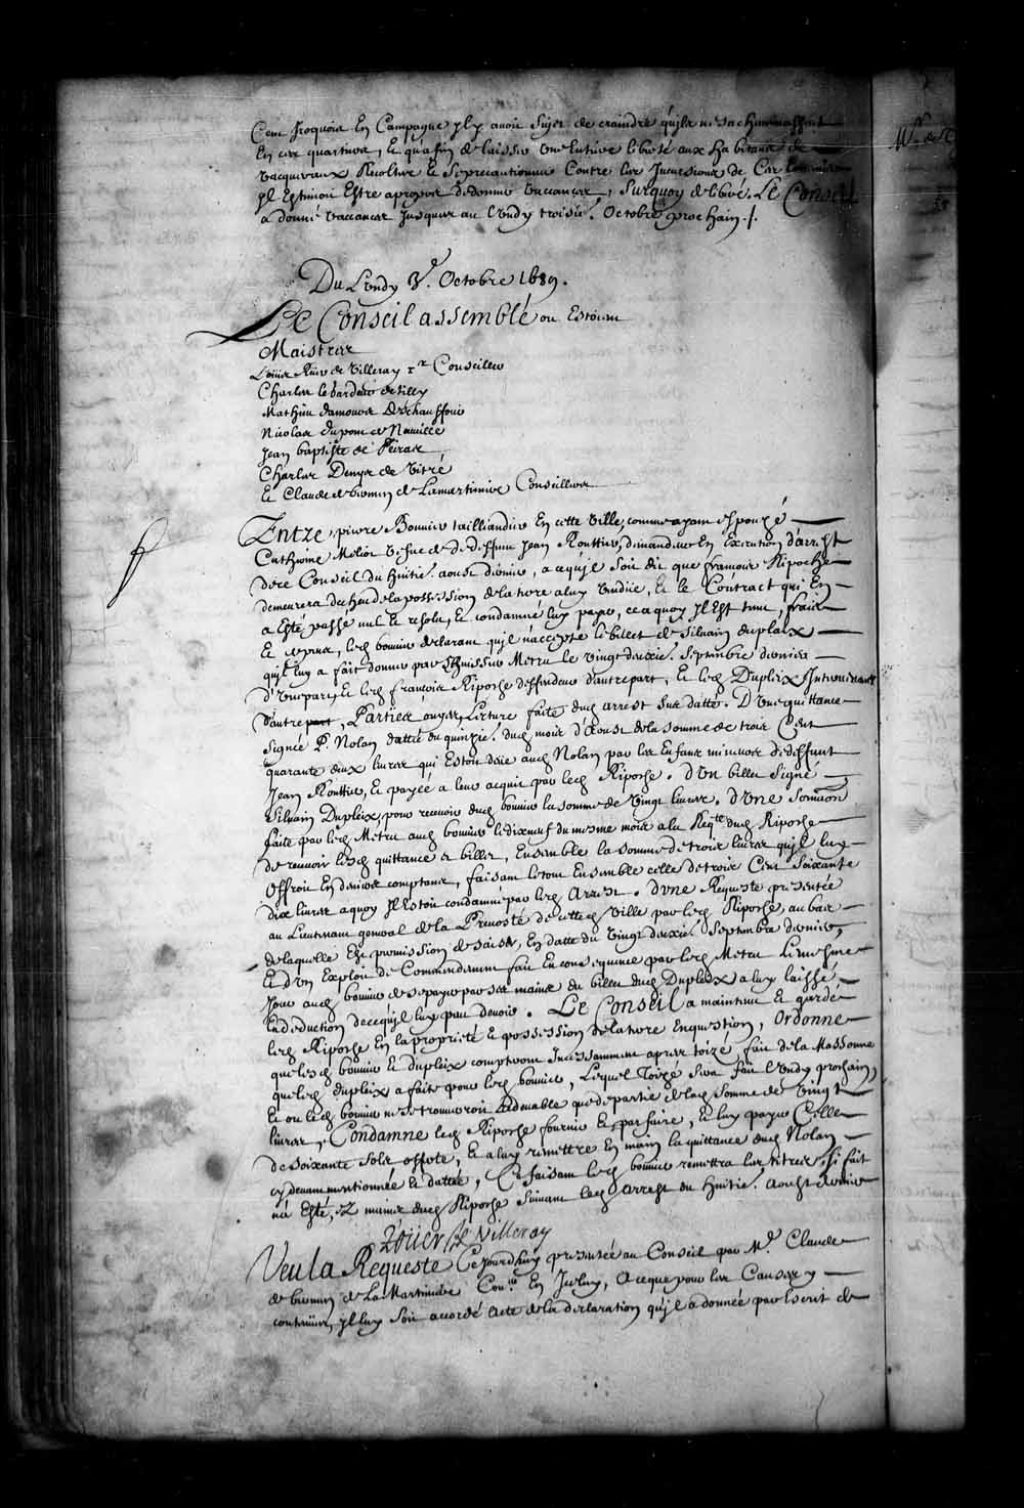 Cent Iroquois En Campagne Il y avoit Sujet de craindre qu'ils
En ces quartiers, Et qu'afin de laisser Une Entiere liberté aux habitans de
vacquer aux Recoltes Et Se precautionner Contre les Incursions de Ces
Il Estimoit Estre apropos De donner vaccances, Surquoy deliberé. Le Conseil
a donné vaccances Jusques au lundy troisie. Octobre prochain ./.
Du Lundy 3e. Octobre 1689.
Le Conseil assemblé ou Estoient
Maistres
Loüis Roüer de Villeray 1er Conseiller
Charles le Gardeur de Tilly
Mathieu Damours Deschauffour
Nicolas Dupont de Neuville
Jean baptiste de Peiras
Charles Denys de Vitré
Et Claude de bermen de Lamartiniere Conseillers
Entre pierre Bonnier taillandier En cette Ville, comme ayant Espouzé
Catherine Meliot Vefve de deffunt Jean Routtier, demandeur En Execution d'arrest
de ce Conseil du huitie. aoust dernier, a ce qu'il soit dit que françois Riposhe
demeurera de la possession de la terre a luy vendüe, Et le Contract qui En
a Esté passé nul Et resolu, Et condamné luy payer, ce a quoy Il Est tenu, frais
Et ledt bonnier declarant qu'il n'accepte le billet de Silvain Dupleix
qu'il luy a fait donner par l'huissier Metru le vingt deuxie. Septembre dernier
D'Une part, Et ledt françois Riposhe deffendeur d'autre part, Et ledt Dupleix Intervenant
D'autre part, Parties ouyes, Lecture faite dudt arrest Sus datté. D'Une quittance
Signée P. Nolan dattée du quinzie. dudt mois d'Aoust de la somme de trois Cent
quarante deux livres qui Estoit deüe audt Nolan par les Enfans mineurs de deffunt
Jean Routtier, Et payée a leur acquit par ledt Riposhe. d'Un billet Signé
Silvain Dupleix, pour recevoir dudt bonnier la somme de Vingt livres. d'Une Somaon
faite par ledt Metru audt bonnier le dixneuf du mesme mois a la Reqte dudt Riposhe
de recevoir lesd quittance et billet, Ensemble la somme de trois livres qu'il luy
offroit En deniers comptans, faisant letout Ensemble celle de trois Cent Soixante
dix livres a quoy Il Estoit condamné par ledt Arrest. d'Une Requeste presentée
au Lieutenant general de la Prevosté de cette Ville par ledt Riposhe, au bas
de laquelle Est permission de saisir, En datte du Vingt deuxie. Septembre dernier,
Et d'Un Exploit de Commandement fait En consequence par ledt Metru Le mesme
Jour audt bonnier de se payer par ses mains du billet dudt Dupleix a luy laissé
En deduction de ce qu'il luy peut devoir. Le Conseil a maintenu Et gardé
ledt Riposhe En la proprieté Et possession de la terre En question, Ordonne
que lesd bonnier Et dupleix compteront Incessamment apres toizé fait de la Massonne
que ledt dupleix a faite pour ledt bonnier, Lequel Toizé sera fait lundy prochain,
Et ou ledt bonnier ne se trouveroit Redevable que de partie de la Somme de Vingt
livres, Condamne ledt Riposhe fournir Et parfaire, Et luy payer Celle
de soixante Sols offerte, Et a luy remettre En main la quittance dudt Nolan
cy devant mentionnée Et dattée, Ce faisant ledt bonnier remettra les titres, si fait
n'a Esté, Ez mains dudt Riposhe Suivant ledt Arrest du huitie. Aoust dernier
Roüer de Villeray
Veu la Requeste Ce jourdhuy presentée au Conseil par Me. Claude
de bermen de La Martiniere Conler. En Iceluy, A ce que pour les Causes y
contenües, Il luy soit accordé Acte de la declaration qu'il a donnée par Escrit de